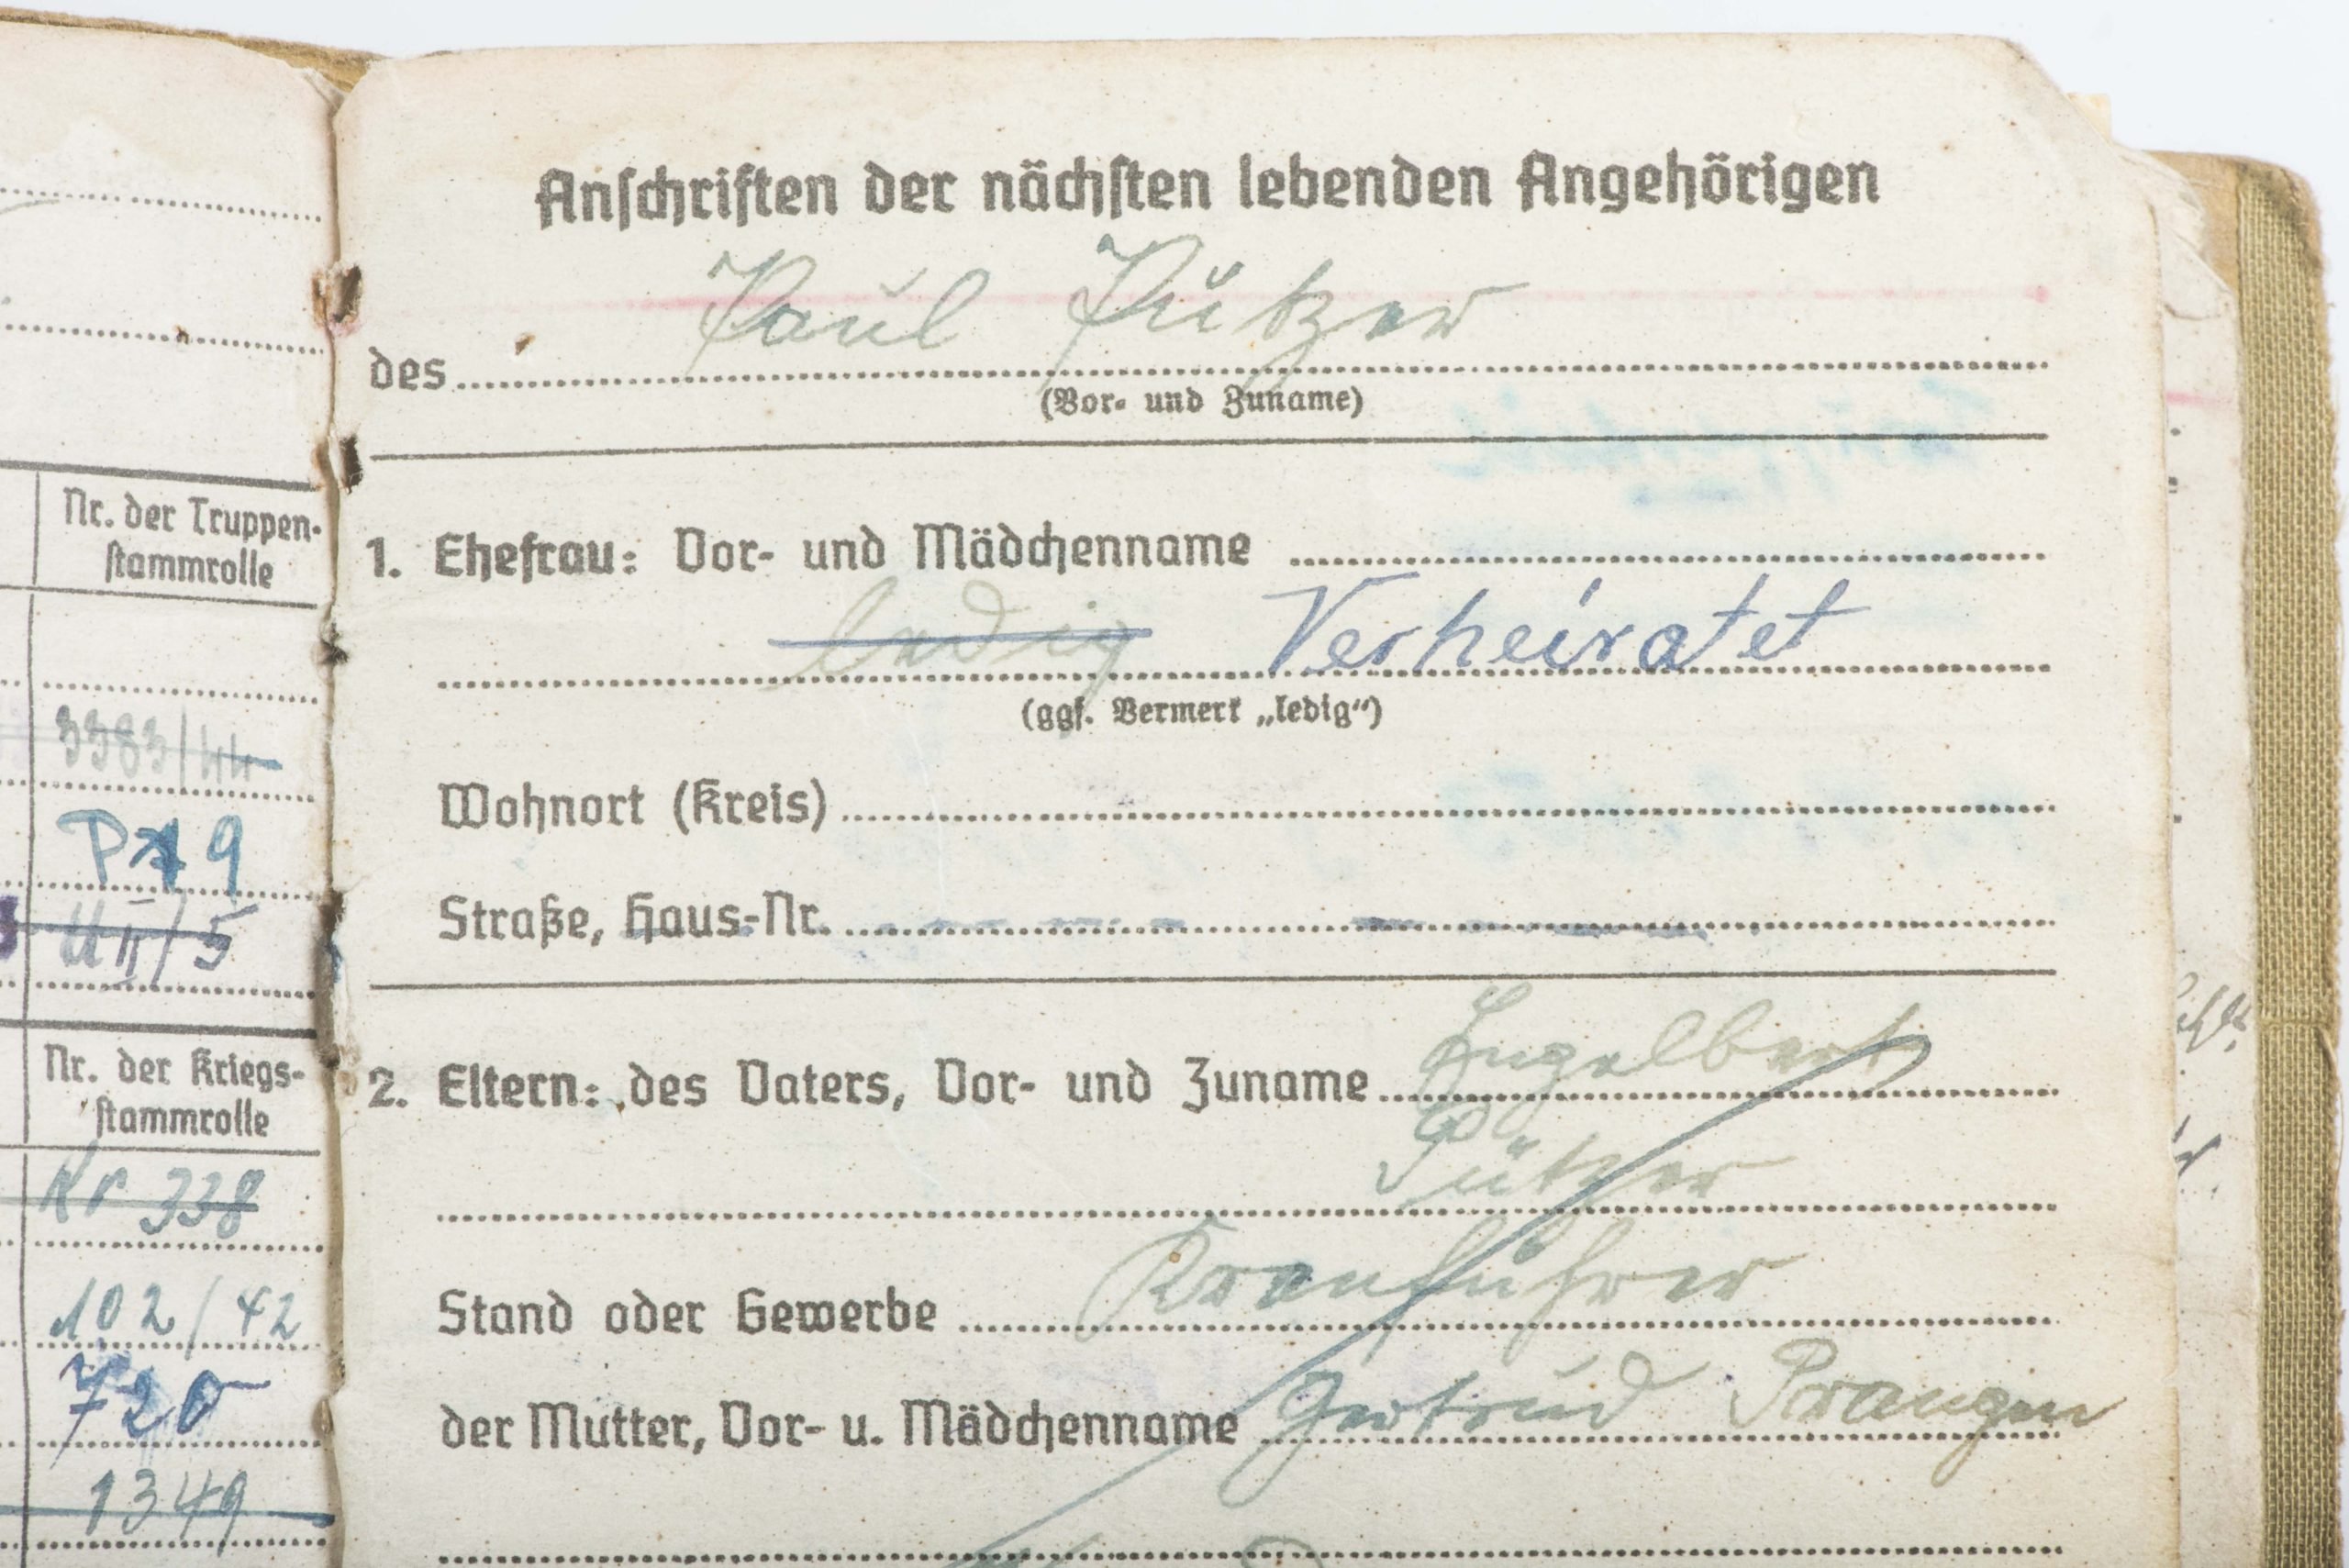 Nr. der Truppen-
stammrolle
3383/44
P 9
U II/5
Nr. der Kriegs-
stammrolle
Kr 338
102/42
720
1349
Anschriften der nächsten lebenden Angehörigen
Paul Pützer
des
(Vor- und Zuname)
1. Ehefrau: Vor- und Mädchenname
ledig Verheiratet
(ggf. Vermerk „ledig“)
Wohnort (Kreis)
Straße, Haus-Nr.
2. Eltern: des Vaters, Vor- und Zuname Engelbert
Pützer
Stand oder Gewerbe Kranführer
der Mutter, Vor- u. Mädchenname Gertrud Prangen